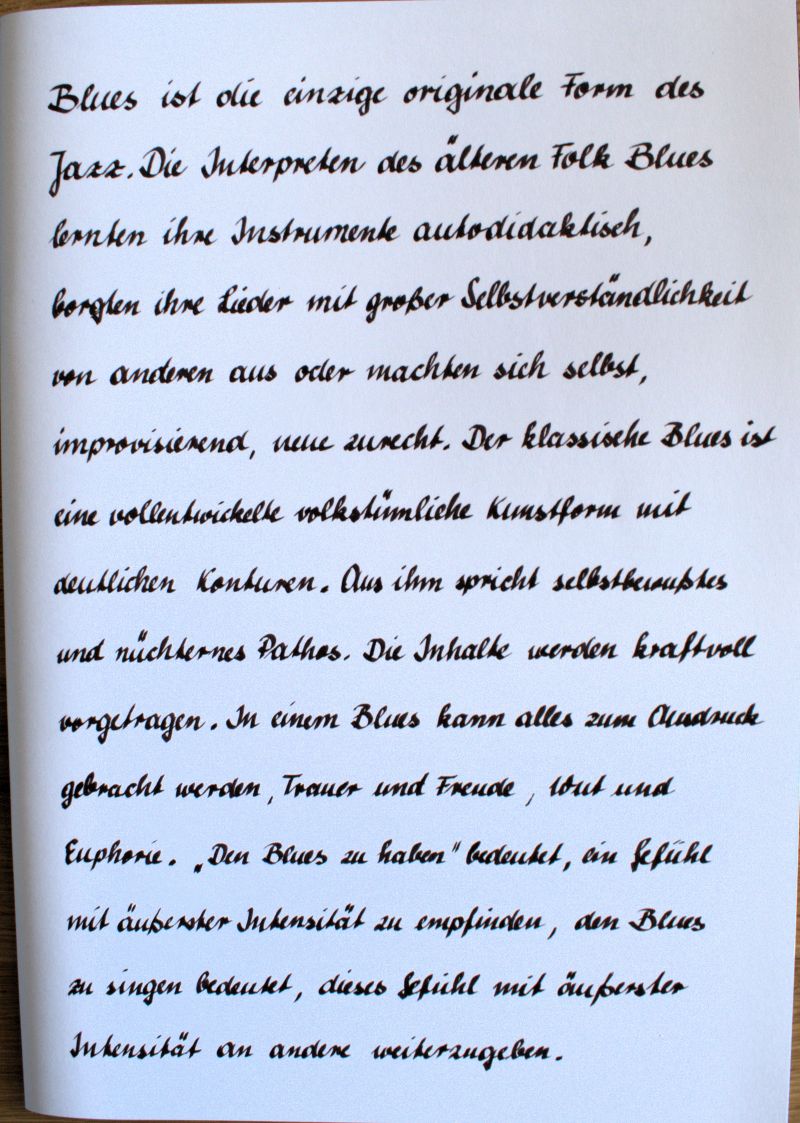 Blues ist die einzige originale Form des
Jazz. Die Interpreten des älteren Folk Blues
lernten ihre Instrumente autodidaktisch,
borgten ihre Lieder mit großer Selbstverständlichkeit
von anderen aus oder machten sich selbst,
improvisierend, neue zurecht. Der klassische Blues ist
eine vollentwickelte volkstümliche Kunstform mit
deutlichen Konturen. Aus ihm spricht selbstbewußtes
und nüchternes Pathos. Die Inhalte werden kraftvoll
vorgetragen. In einem Blues kann alles zum Ausdruck
gebracht werden, Trauer und Freude, Wut und
Euphorie. „Den Blues zu haben" bedeutet, ein Gefühl
mit äußerster Intensität zu empfinden, den Blues
zu singen bedeutet, dieses Gefühl mit äußerster
Intensität an andere weiterzugeben.